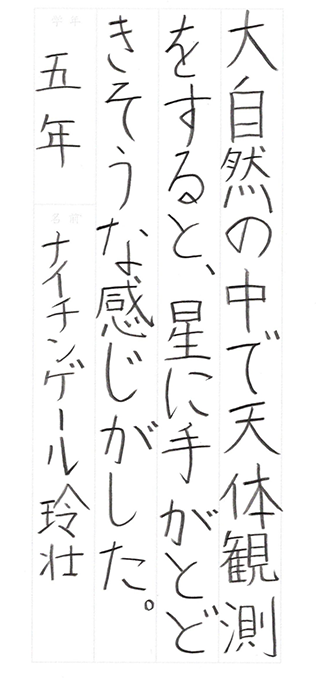 大自然の中で天体観測
をすると、星に手がとど
きそうな感じがした。
学年
五年
名前
ナイチンゲール玲壮